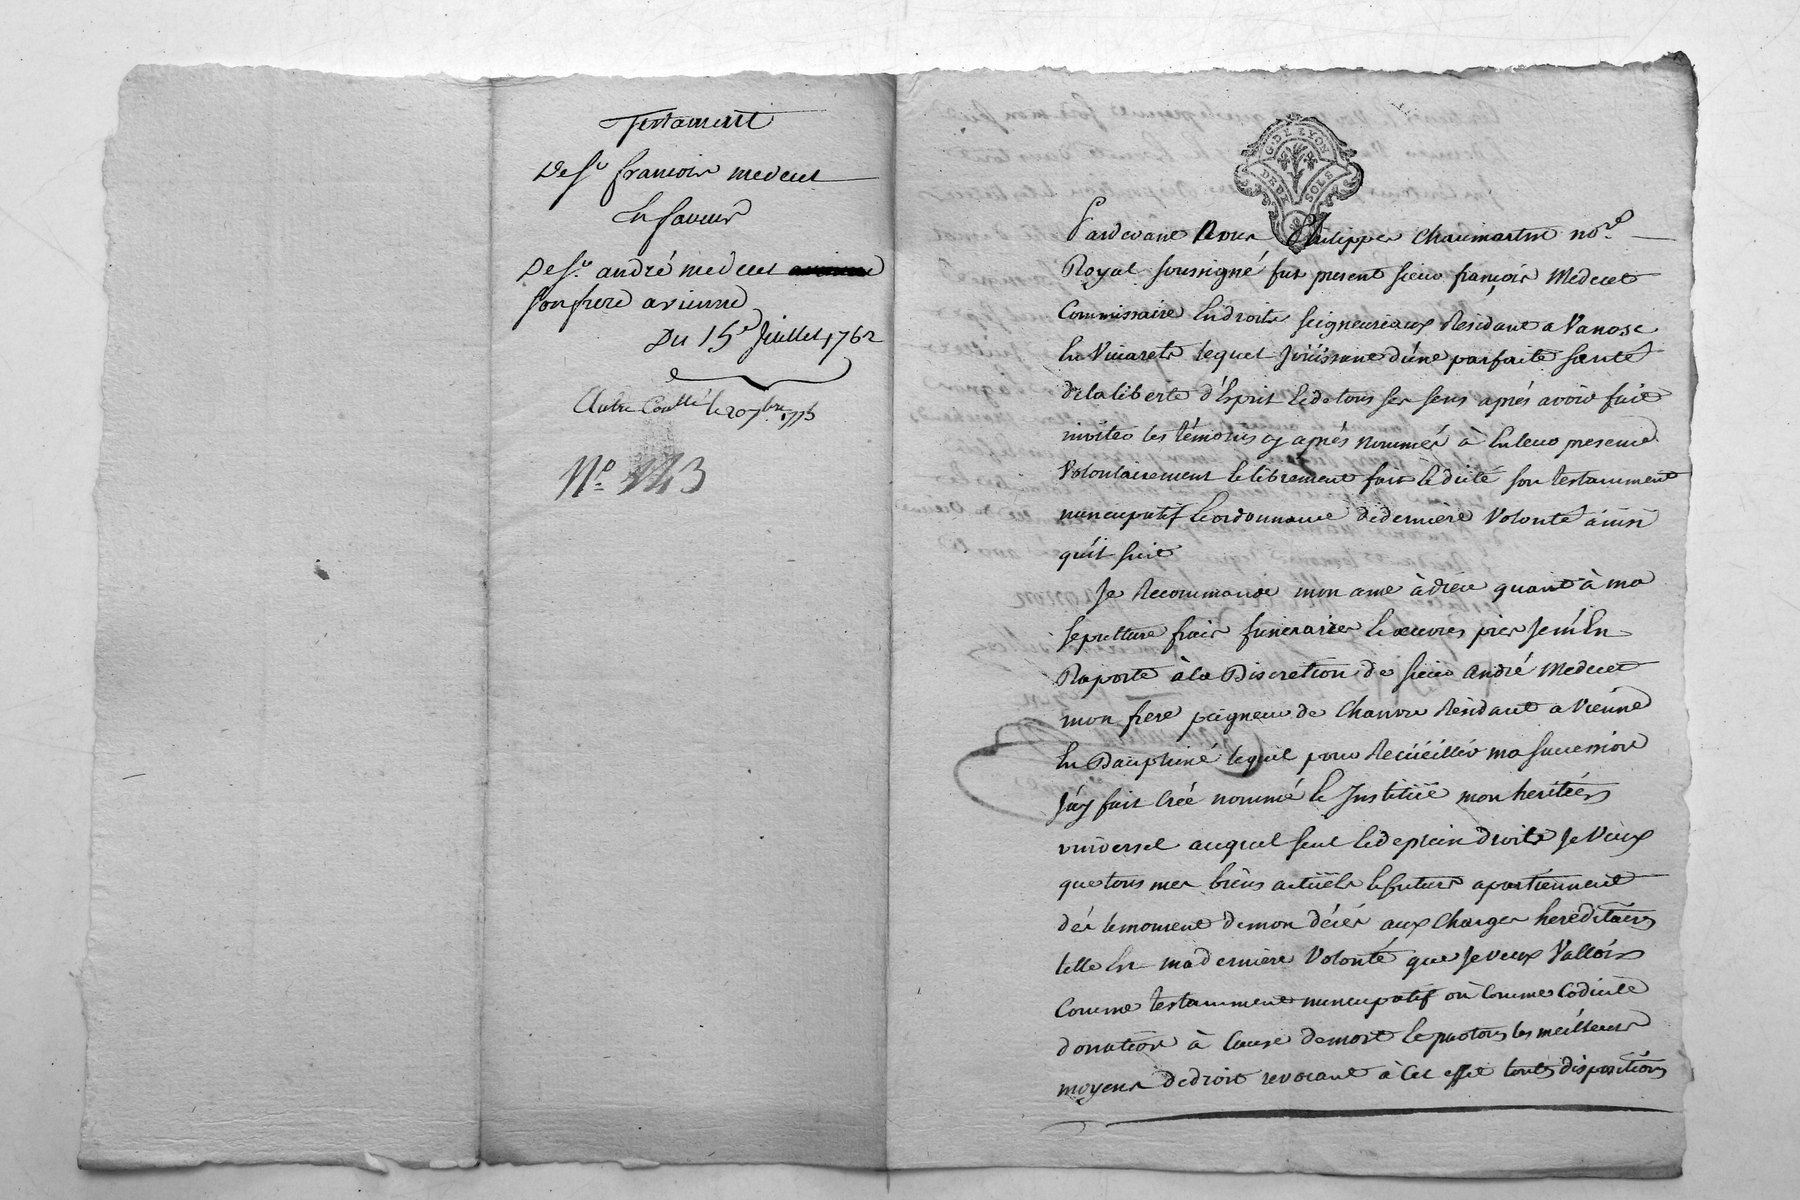 Testament
De Sr françois medecet
En faveur
De Sr andré medecet
son frere a vienne
Du 15e Juillet 1762
Autre Cotté le 20 7bre 1775
No 143
G. DE LYON
DEUX SOLS
Pardevant Nous Philippes Chaumartin nore
Royal soussigné fut present sieur françois Medecet
Commissaire En droits seigneuriaux Residant a Vanosc
En Vivarets lequel Joüissant d'une parfaite santé
de la liberté d'Esprit Et de tous ses sens aprés avoir fait
inviter les témoins cy aprés nommés à En leur presence
Volontairement Et librement fait Et dicté son testamment
nuncupatif Et ordonnance de derniere Volonté ainsi
qu'il suit
Je Recommande mon ame à dieu quant à ma
sepulture frais funeraires Et œuvres pies Je m'En
Raporte à la Discretion de sieur André Medecet
mon frere peigneur de Chanvre Residant a Vienne
En Dauphiné lequel pour Recüeillir ma succession
J'ay fait Créé nommé Et Institüé mon heritiér
universel auquel seul Et de plein droit Je Veux
que tous mes biens actüels Et futurs apartiennent
dés le moment de mon décés aux Charges heréditaires
telle Est ma derniére Volonté que Je veux Valloir
Comme testamment nuncupatif où Comme Codicile
donnation à Cause de mort Et par tous les meilleurs
moyens de droit revocant à Cet effet toutes dispositions